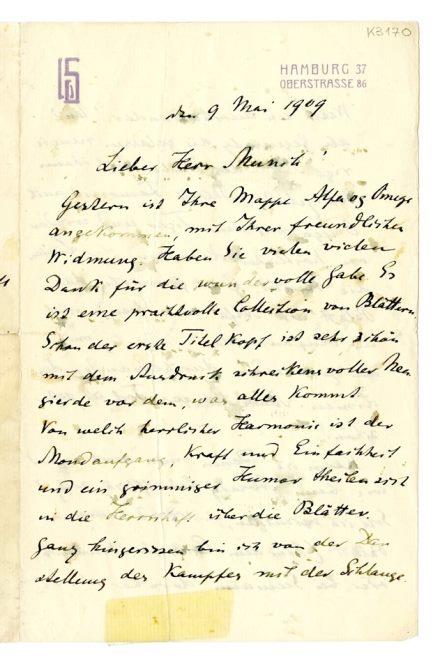 K3170
HAMBURG 37
OBERSTRASSE 86
den 9 Mai 1909
Lieber Herr Munch!
Gestern ist Ihre Mappe Alfa og Omega
angekommen, mit Ihrer freundlichen
Widmung. Haben Sie vielen vielen
Dank für die wundervolle Gabe Es
ist eine prachtvolle Collection von Blättern
Schon der erste Titelkopf ist sehr schön
mit dem Ausdruck schreckensvoller Neu
gierde vor dem, was alles kommt
Von welch herrlicher Harmonie ist der
Mondaufgang, Kraft und Einfachheit
und ein grimmiger Humor theilen sich
in die Herrschaft über die Blätter.
Ganz hingerissen bin ich von der Dar
stellung des Kampfes mit der Schlange.